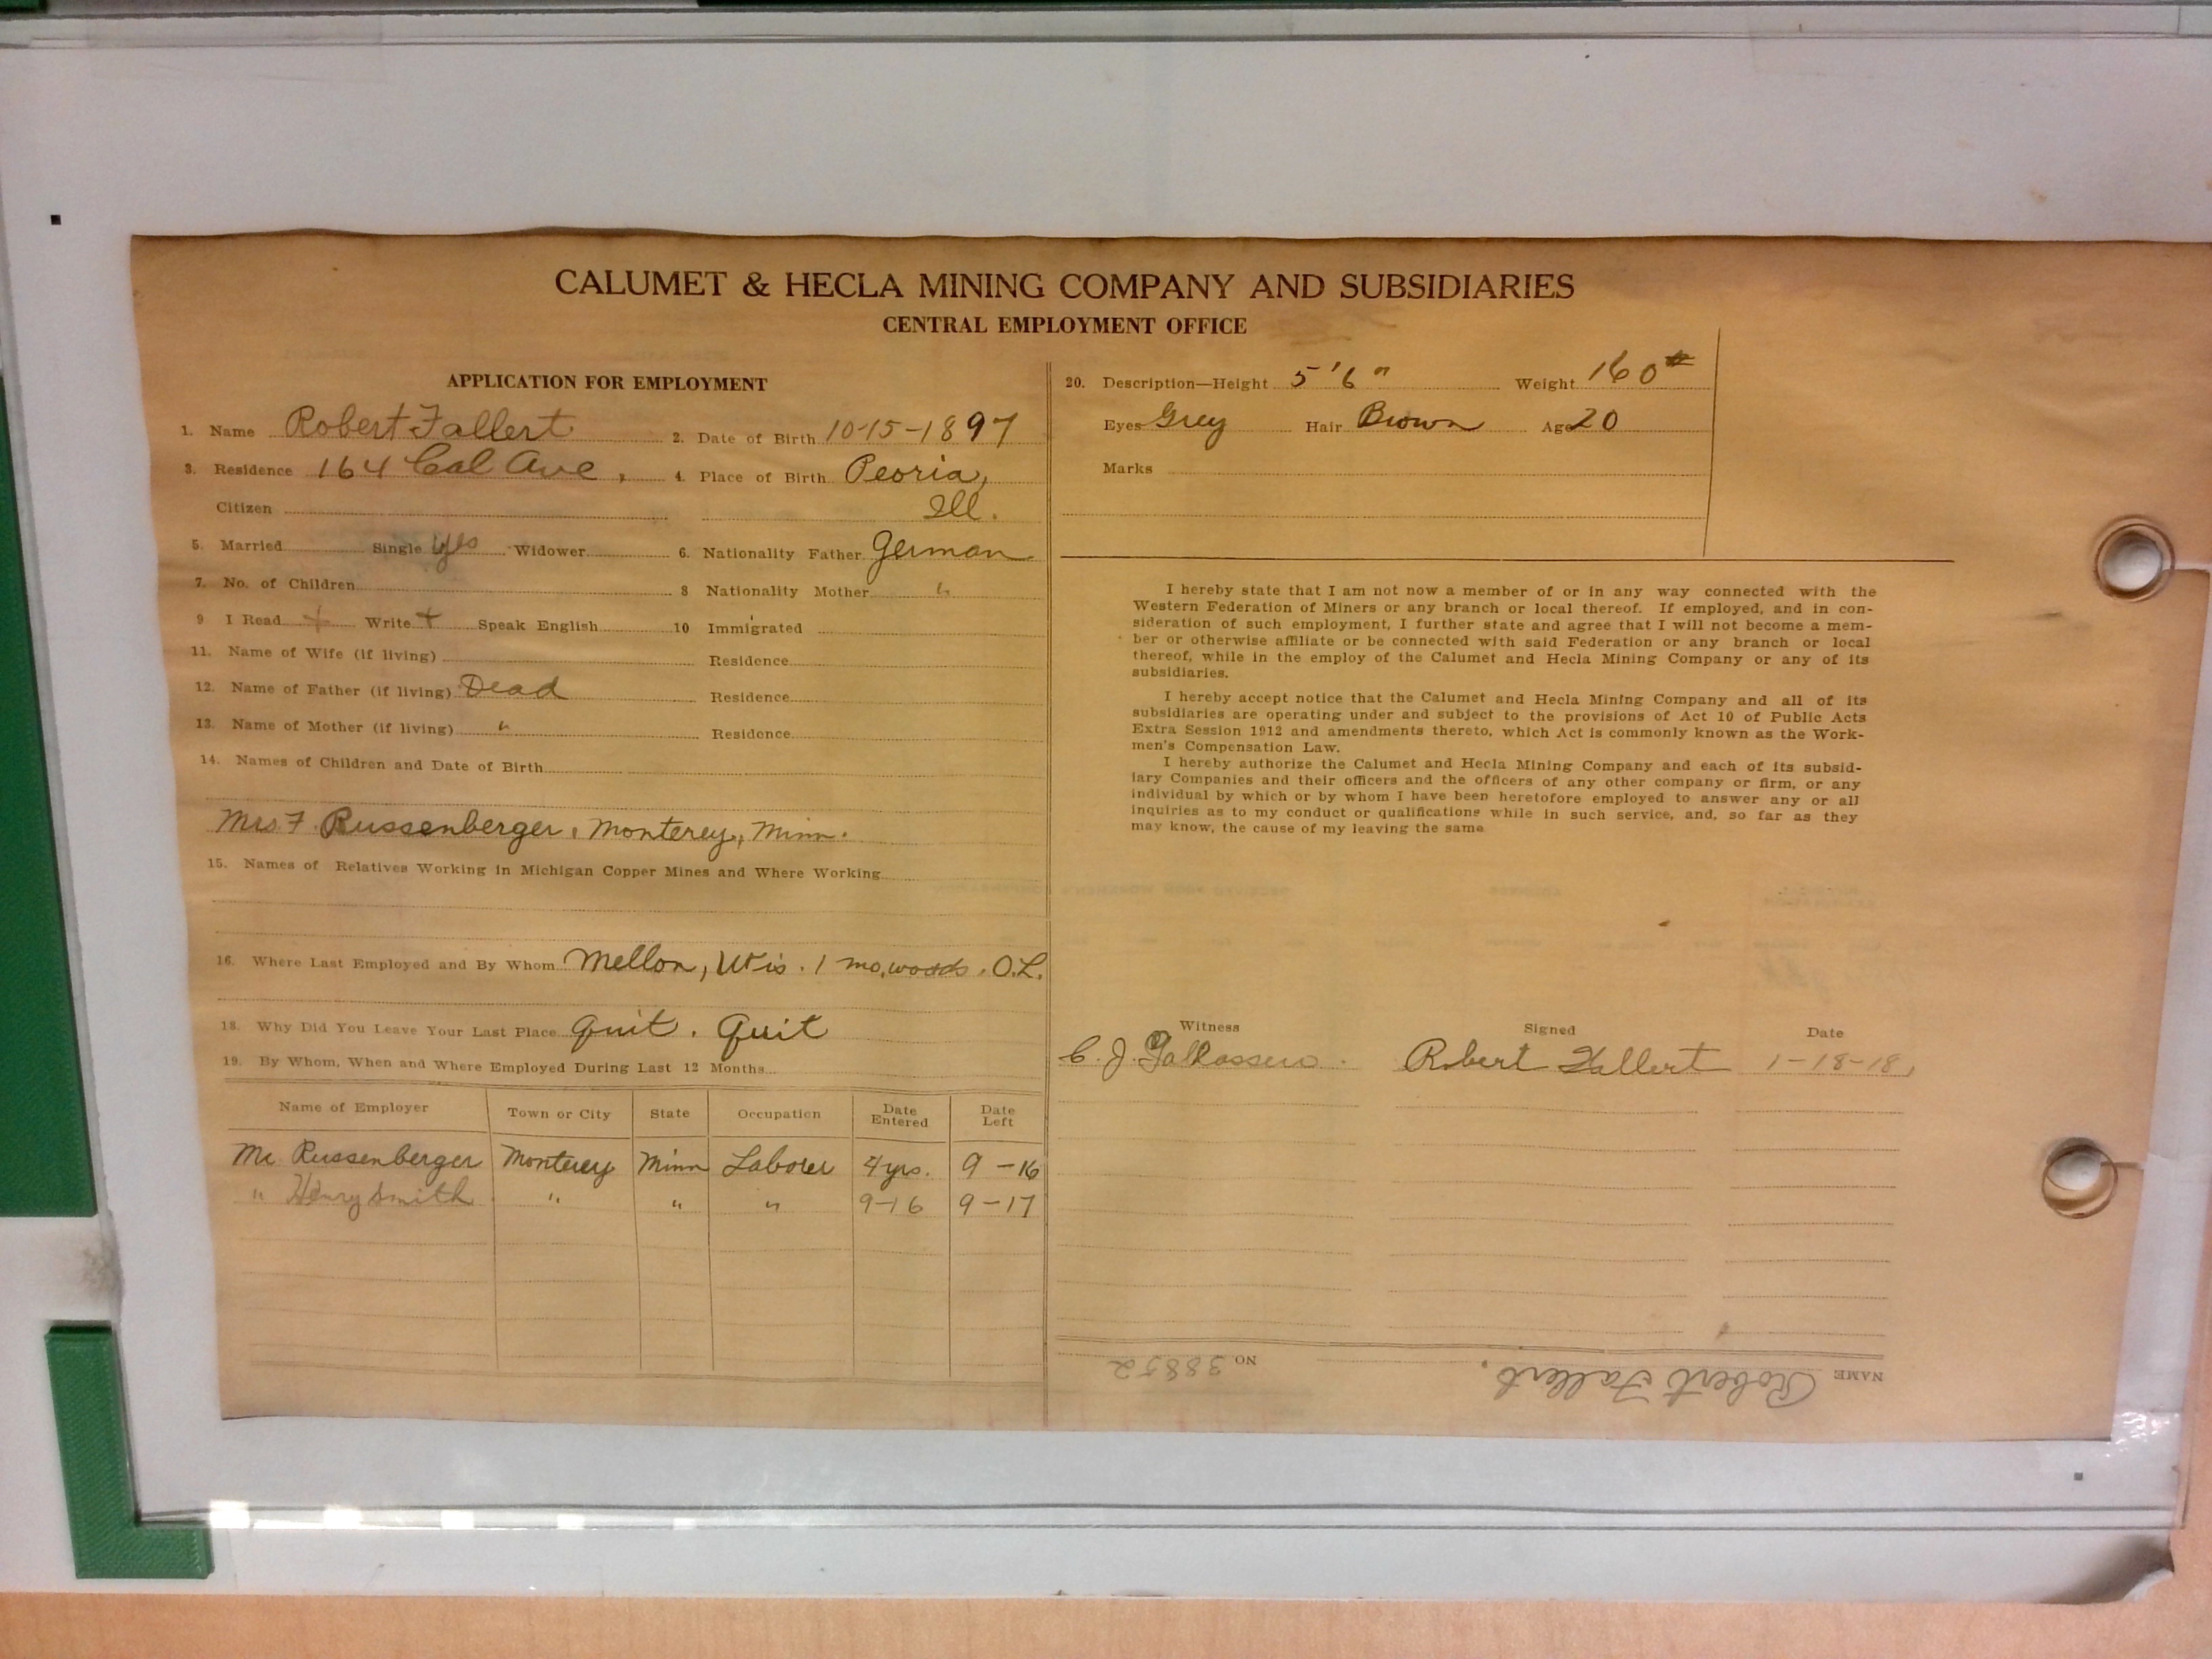 CALUMET & HECLA MINING COMPANY AND SUBSIDIARIES
CENTRAL EMPLOYMENT OFFICE
APPLICATION FOR EMPLOYMENT
1. Name Robert Fallert 2. Date of Birth 10-15-1897
3. Residence 164 Cal Ave, 4. Place of Birth Peoria,
Citizen Ill.
5. Married Single yes Widower 6. Nationality Father German
7. No. of Children 8 Nationality Mother "
9 I Read + Write + Speak English 10 Immigrated
11. Name of Wife (if living) Residence
12. Name of Father (if living) Dead Residence
13. Name of Mother (if living) " Residence
14. Names of Children and Date of Birth
Mrs F. Russenberger, Monterey, Minn.
15. Names of Relatives Working in Michigan Copper Mines and Where Working
16. Where Last Employed and By Whom Mellon, Wis. 1 mo, woods. O.L.
18. Why Did You Leave Your Last Place Quit. Quit
19. By Whom, When and Where Employed During Last 12 Months
Name of Employer Town or City State Occupation Date Entered Date Left
Mr Russenberger Monterey Minn Laborer 4 yrs. 9-16
" Henry Smith " " " 9-16 9-17
20. Description—Height 5'6" Weight 160#
Eyes Grey Hair Brown Age 20
Marks
I hereby state that I am not now a member of or in any way connected with the
Western Federation of Miners or any branch or local thereof. If employed, and in con-
sideration of such employment, I further state and agree that I will not become a mem-
ber or otherwise affiliate or be connected with said Federation or any branch or local
thereof, while in the employ of the Calumet and Hecla Mining Company or any of its
subsidiaries.
I hereby accept notice that the Calumet and Hecla Mining Company and all of its
subsidiaries are operating under and subject to the provisions of Act 10 of Public Acts
Extra Session 1912 and amendments thereto, which Act is commonly known as the Work-
men's Compensation Law.
I hereby authorize the Calumet and Hecla Mining Company and each of its subsid-
iary Companies and their officers and the officers of any other company or firm, or any
individual by which or by whom I have been heretofore employed to answer any or all
inquiries as to my conduct or qualifications while in such service, and, so far as they
may know, the cause of my leaving the same
Witness Signed Date
C. J. Robert Fallert 1-18-18,
NAME Robert Fallert. NO 38852